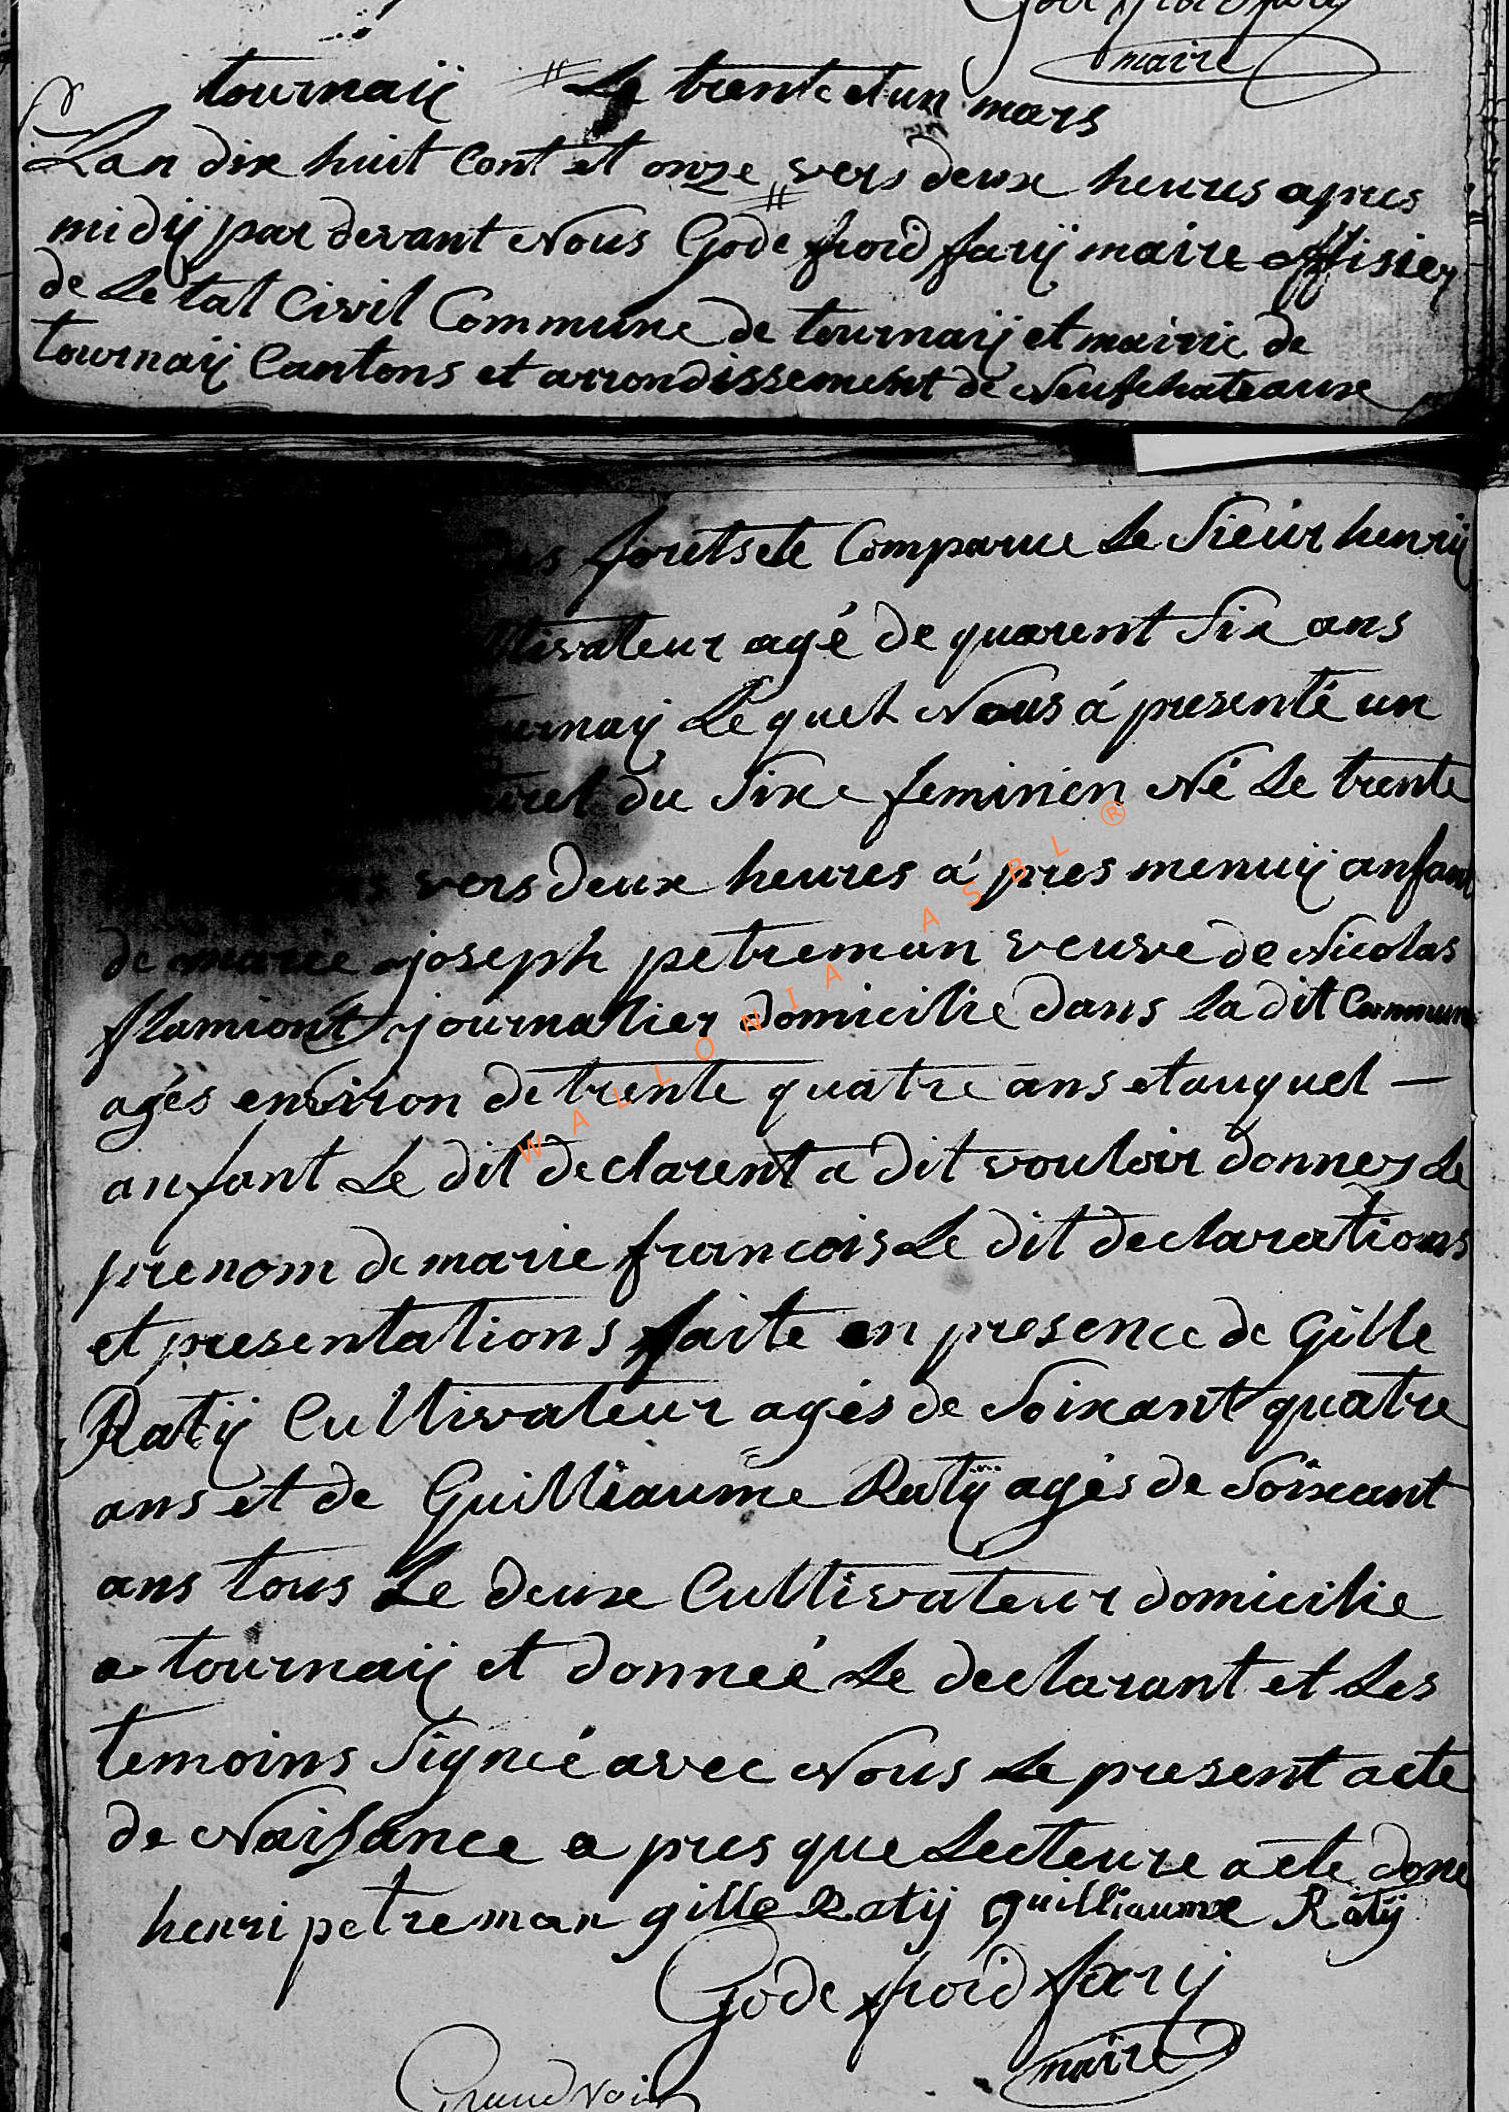 maire
tournaÿ Le trente et un mars
Lan dix huit Cent et onze vers deux heures apres
midÿ par devant Nous Gode froid farÿ maire offisier
de Le tat Civil Commune de tournaÿ et mairie de
tournaÿ Cantons et arrondissement de Neufchateaux
des forets te Comparue Le Sieur henrÿ
ltivateur agé de quarent Six ans
urnaÿ Le quel Nous á presenté un
urel du Sixe feminien Né Le trente
vers deux heures á pres menuÿ anfant
de marie joseph petreman veuve de Nicolas
flamiont journalier domicilie dans La dit Commune
agés environ de trente quatre ans et auquel —
anfant Le dit declarent a dit vouloir donner Le
prenom de marie francois Le dit declarations
et presentations faite en presence de Gille
Ratÿ Cultivateur agés de Soixant quatre
ans et de Guilliaume Ratÿ agés de Soixant
ans tous Le deux Cultivateur domicilie
a tournaÿ et donneé Le declarant et Les
temoins Signeé avec Nous Le present acte
de Naisance a pres que Lecteure a ete done
henri petreman gille Ratÿ guilliaume Ratÿ
Gode froid farÿ
maire
WALLONIA ASBL ®